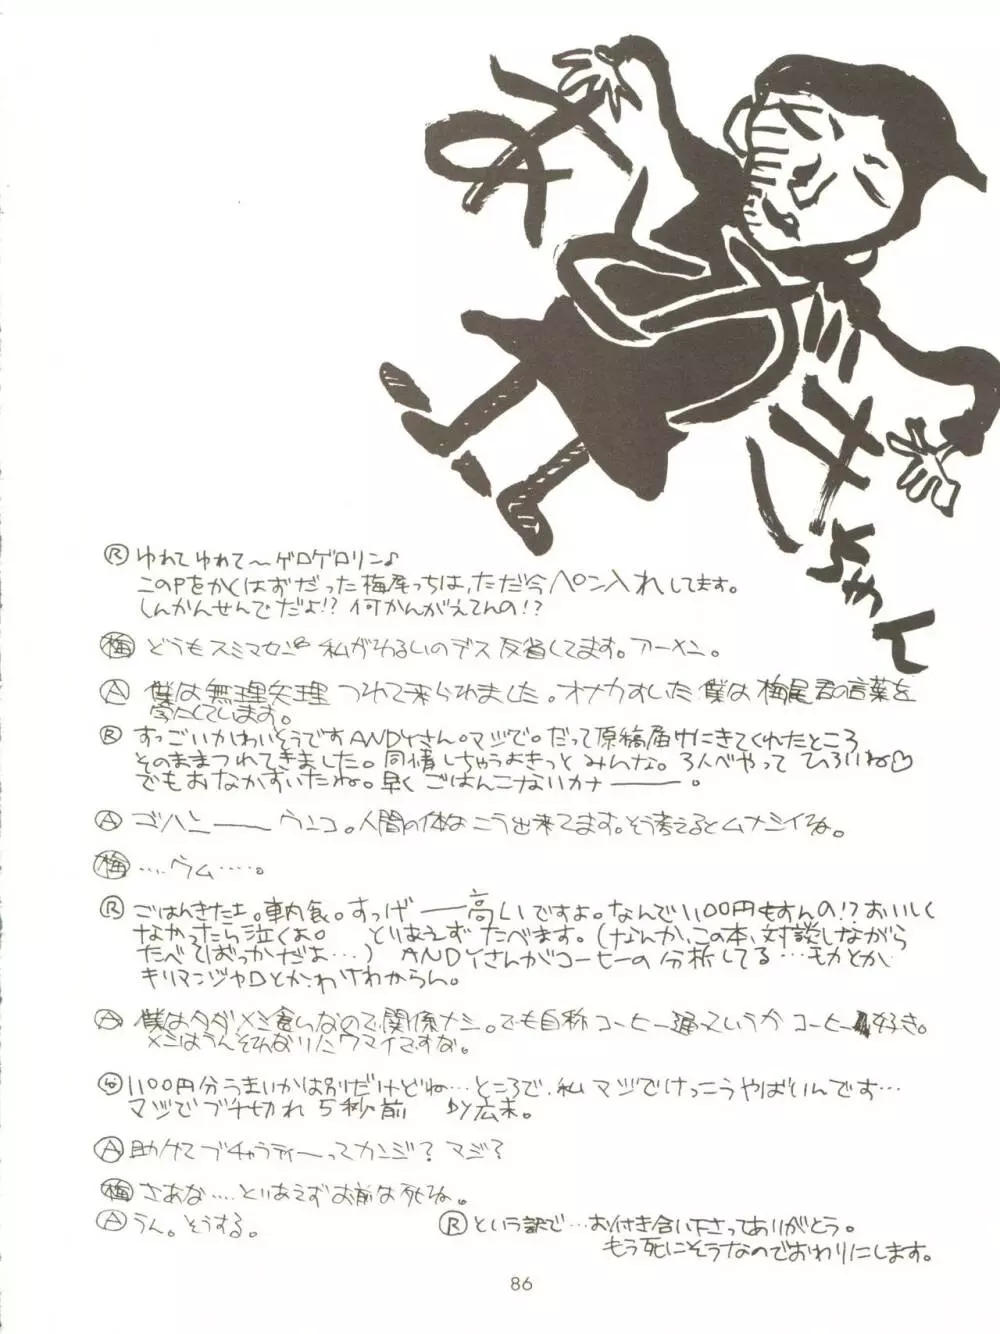 Ⓡ ゆれて ゆれて〜ゲロゲロリン♪
このPをかくはずだった梅尾っちは、ただ今ペン入れしてます。
しんかんせんでだよ!? 何かんがえてんの!?
梅 どうもスミマセン 私がわるいのデス 反省してます。アーメン。
Ⓐ 僕は無理矢理 つれて来られました。オナカすいた僕は 梅尾君の言葉を
して います。
Ⓡ すっごいかわいそうですANDYさん。マジで。だって原稿届けにきてくれたところ
そのままつれてきました。同情しちゃうよきっと みんな。3人べやって ひろいね♡
でもおなかすいたね。早く ごはんこないカナ―――。
Ⓐ ゴハン―― ウンコ。人間の体はこう出来てます。そう考えるとムナシイね。
梅 ‥‥ウム‥‥‥。
Ⓡ ごはんきたよ。車内食。すっげ――高いですよ。なんで1100円もすんの!? おいしく
なかったら泣くよ。 とりあえず たべます。(なんか、この本、対談しながら
たべてばっかだよ‥‥) ANDYさんがコーヒーの 分析してる…モカとか
キリマンジャロとか、わけわからん。
Ⓐ 僕はタダメシ食いなので関係ナシ。でも自称コーヒー通っていうか コーヒー好き。
メシはうんそれなりにウマイですな。
1100円分うまいかは別だけどね…ところで、私 マジでけっこうやばいんです…
マジで ブチ切れ 5秒前 by広末。
Ⓐ 助けて ブチャラティ―ってカンジ? マジ?
梅 さあな‥‥とりあえずお前は死ね。
Ⓐ うん。そうする。
Ⓡ という訳で…お付き合い下さってありがとう。
もう死にそうなのでおわりにします。
86